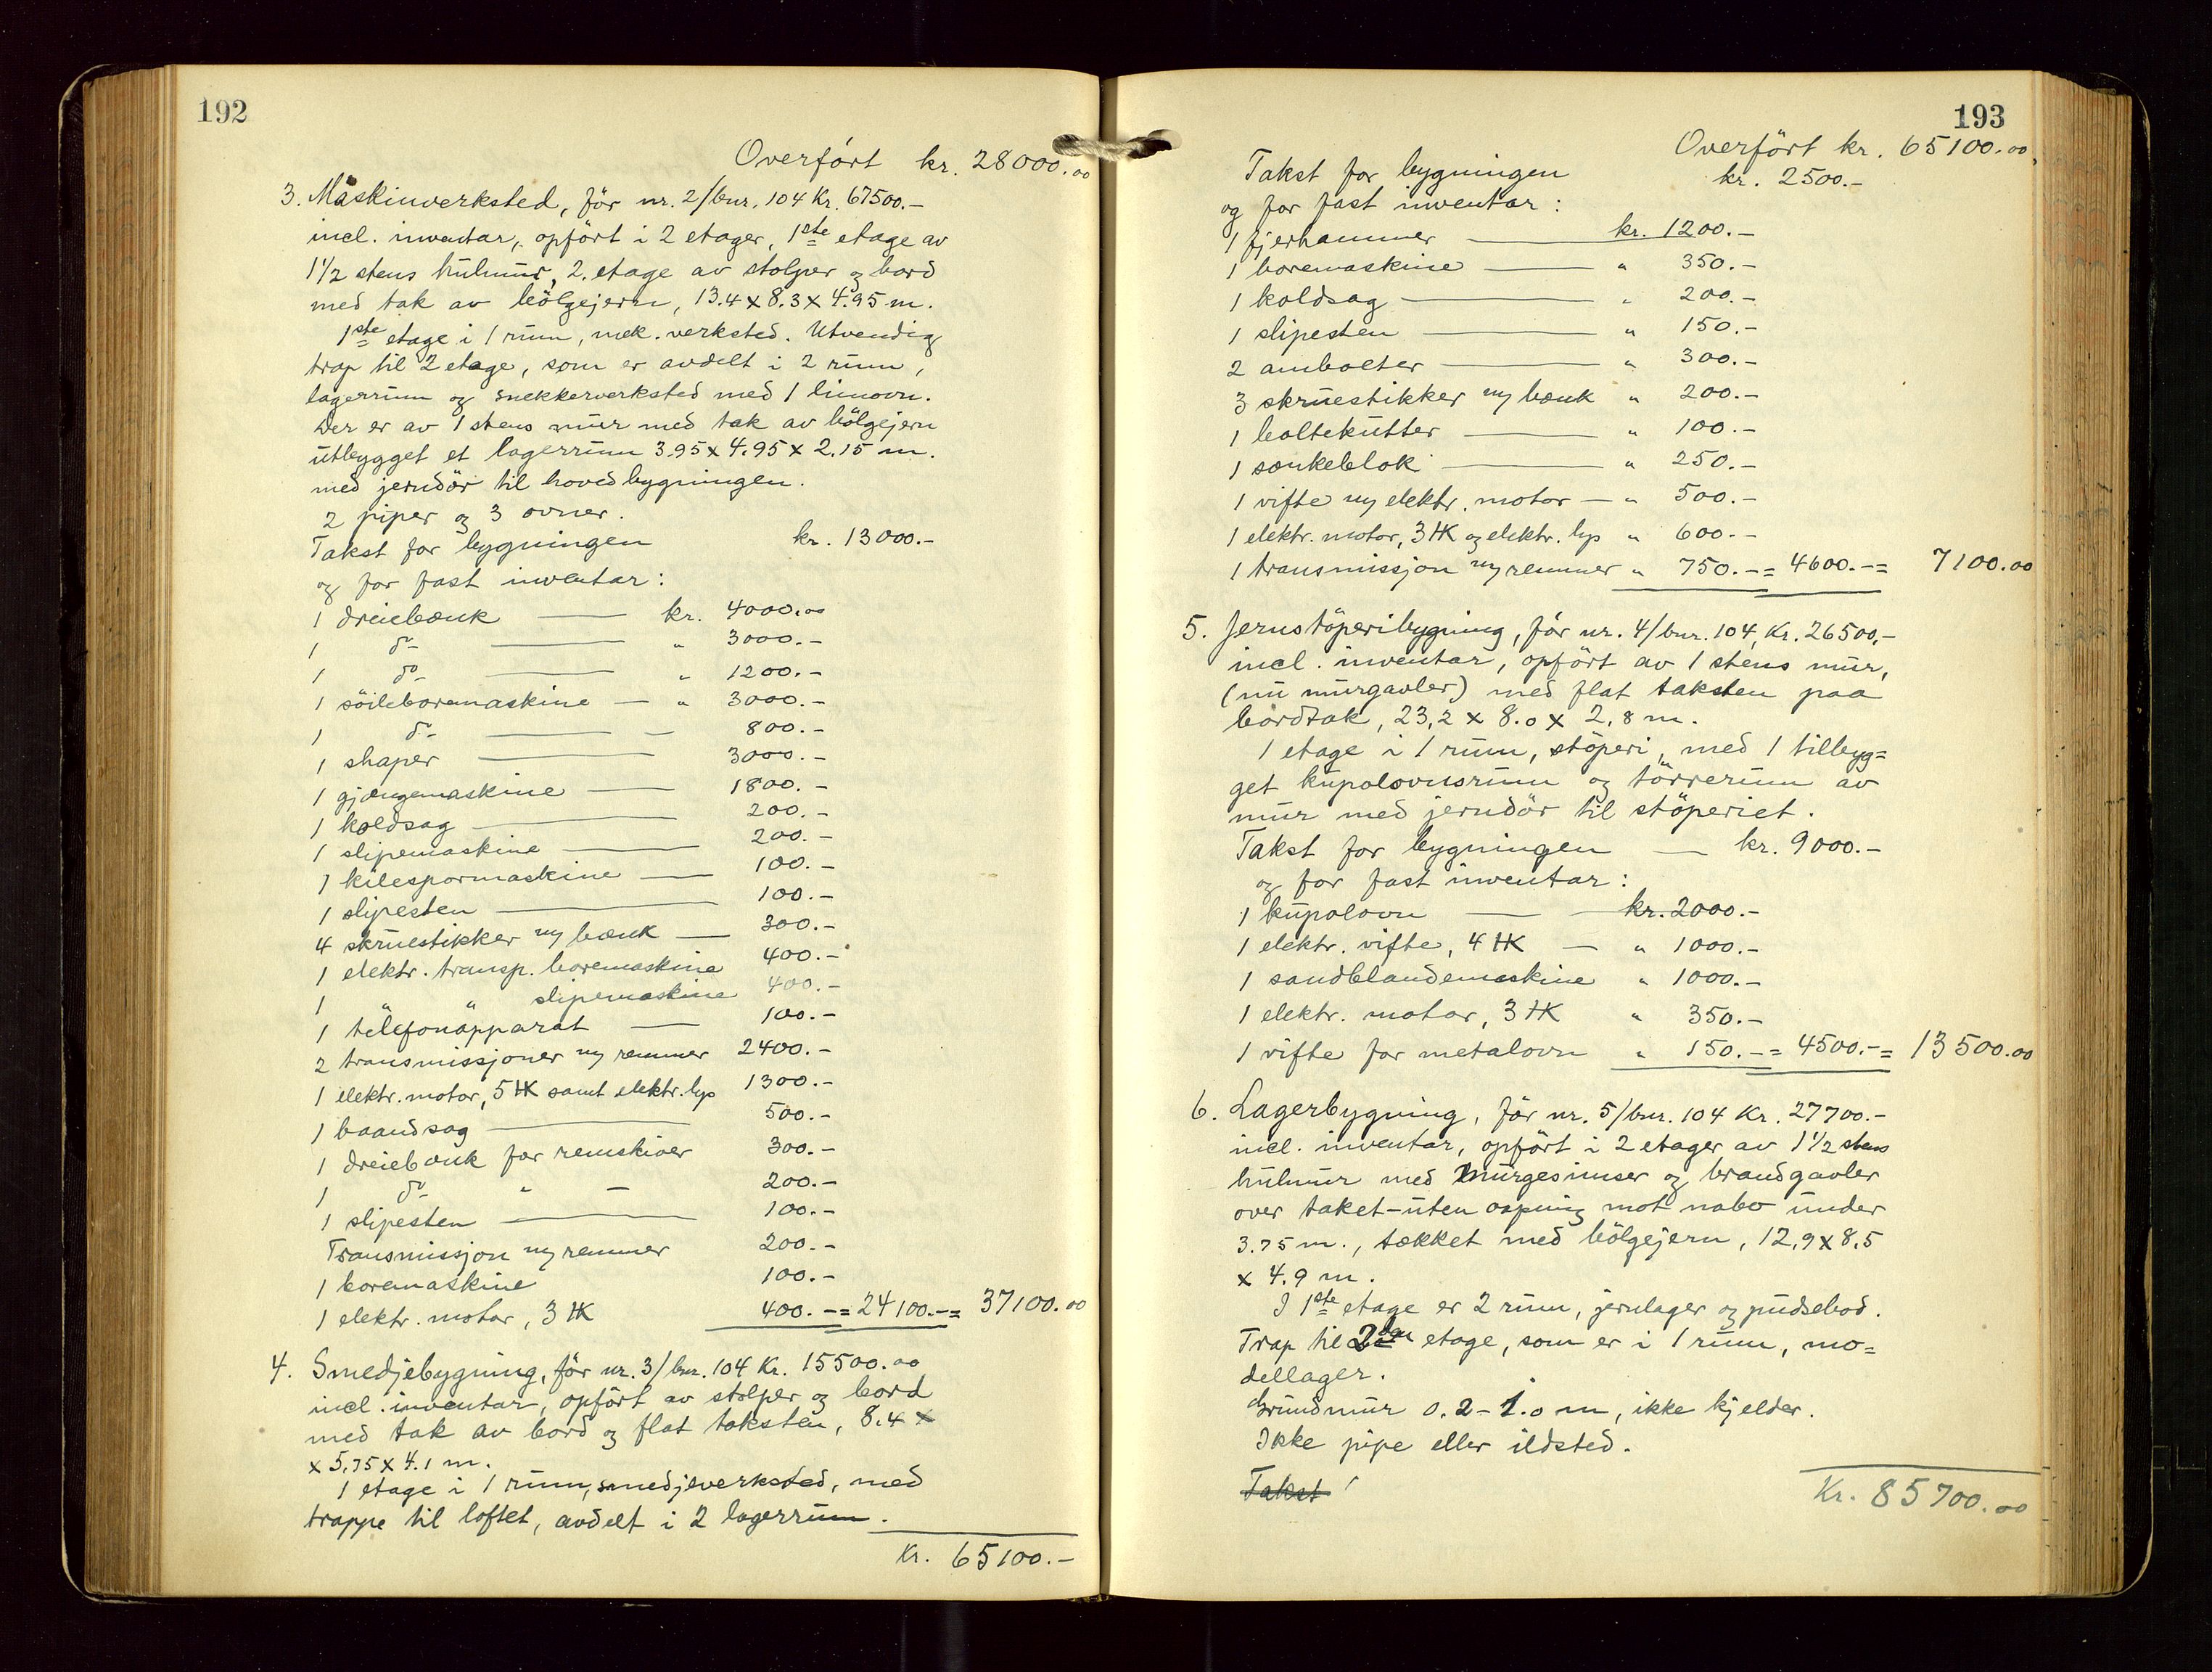 192
Overført kr. 28000.00
3. Maskinverksted, før nr. 2/bnr. 104 Kr. 67500.-
incl. inventar, opført i 2 etager, 1ste etage av
1½ stens hulmur, 2. etage av stolper og bord
med tak av bölgejern, 13.4 x 8.3 x 4.95 m.
1ste etage i 1 rum, mek. verksted. Utvendig
trap til 2 etage, som er avdelt i 2 rum,
lagerrum og snekkerverksted med 1 limovn.
Der er av 1 stens mur med tak av bölgejern
utbygget et lagerrum 3.95 x 4.95 x 2.15 m.
med jerndör til hovedbygningen.
2 piper og 3 ovner.
Takst for bygningen kr. 13000.-
og for fast inventar:
1 dreiebænk — kr. 4000.00
1 do — " 3000.-
1 do — " 1200.-
1 söileboremaskine — " 3000.-
1 do — — 800.-
1 shaper — 3000.-
1 gjængemaskine — 1800.-
1 koldsag — 200.-
1 slipemaskine — 200.-
1 kilespormaskine — 100.-
1 slipesten — 100.-
4 skruestikker m/ bænk — 300.-
1 elektr. transp. boremaskine 400.-
1 " " slipemaskine 400.-
1 telefonapparat — 100.-
2 transmissjoner m/ remmer 2400.-
1 elektr. motor, 5 HK samt elektr. lys 1300.-
1 baandsag — 500.-
1 dreiebænk for remskiver 300.-
1 do " — 200.-
1 slipesten — 100.-
Transmissjon m/ remmer 200.-
1 boremaskine 100.-
1 elektr. motor, 3 HK 400.- = 24100.- = 37100.00
4. Smedjebygning, før nr. 3/bnr. 104 Kr. 15500.00
incl. inventar, opført av stolper og bord
med tak av bord og flat taksten, 8.4 x
x 5.75 x 4.1 m.
1 etage i 1 rum, smedjeverksted, med
trappe til loftet, avdelt i 2 lagerrum.
Kr. 65100.-
193
Overført kr. 65100.00
Takst for bygningen kr. 2500.-
og for fast inventar:
1 fjerhammer — kr. 1200.-
1 boremaskine — " 350.-
1 koldsag — " 200.-
1 slipesten — " 150.-
2 ambolter — " 300.-
3 skruestikker m/ bænk " 200.-
1 boltekutter — " 100.-
1 sænkeblok — " 250.-
1 vifte m/ elektr. motor — " 500.-
1 elektr. motor, 3 HK og elektr. lys " 600.-
1 transmissjon m/ remmer " 750.- = 4600.- = 7100.00
5. Jernstöperibygning, før nr. 4/bnr. 104, Kr. 26500.-
incl. inventar, opført av 1 stens mur,
(nu murgavler) med flat taksten paa
bordtak, 23,2 x 8.0 x 2,8 m.
1 etage i 1 rum, stöperi, med 1 tilbyg=
get kupolovnsrum og törrerum av
mur med jerndör til stöperiet.
Takst for bygningen — kr. 9000.-
og for fast inventar:
1 kupolovn — kr. 2000.-
1 elektr. vifte, 4 HK — " 1000.-
1 sandblandemaskine " 1000.-
1 elektr. motor, 3 HK " 350.-
1 vifte for metalovn " 150.- = 4500.- = 13500.00
6. Lagerbygning, før nr. 5/bnr. 104 Kr. 27700.-
incl. inventar, opført i 2 etager av 1½ stens
hulmur med murgesimser og brandgavler
over taket - uten aapning mot nabo under
3.75 m., tækket med bölgejern, 12,9 x 8,5
x 4.9 m.
I 1ste etage er 2 rum, jernlager og pudsebod.
Trap til 2den etage, som er i 1 rum, mo=
dellager.
Grundmur 0.2-1.0 m, ikke kjelder.
Ikke pipe eller ildsted.
Takst
Kr. 85700.00